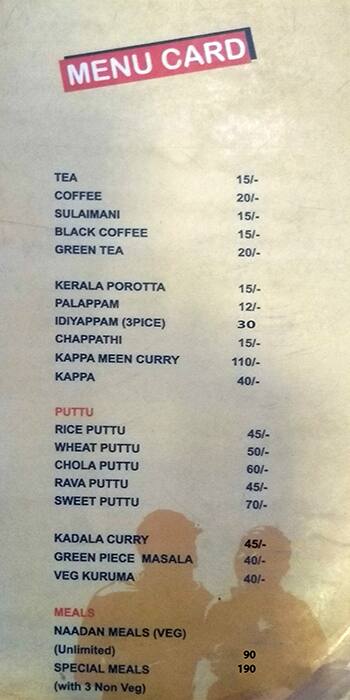 MENU CARD
TEA 15/-
COFFEE 20/-
SULAIMANI 15/-
BLACK COFFEE 15/-
GREEN TEA 20/-
KERALA POROTTA 15/-
PALAPPAM 12/-
IDIYAPPAM (3PICE) 30
CHAPPATHI 15/-
KAPPA MEEN CURRY 110/-
KAPPA 40/-
PUTTU
RICE PUTTU 45/-
WHEAT PUTTU 50/-
CHOLA PUTTU 60/-
RAVA PUTTU 45/-
SWEET PUTTU 70/-
KADALA CURRY 45/-
GREEN PIECE MASALA 40/-
VEG KURUMA 40/-
MEALS
NAADAN MEALS (VEG)
(Unlimited) 90
SPECIAL MEALS 190
(with 3 Non Veg)